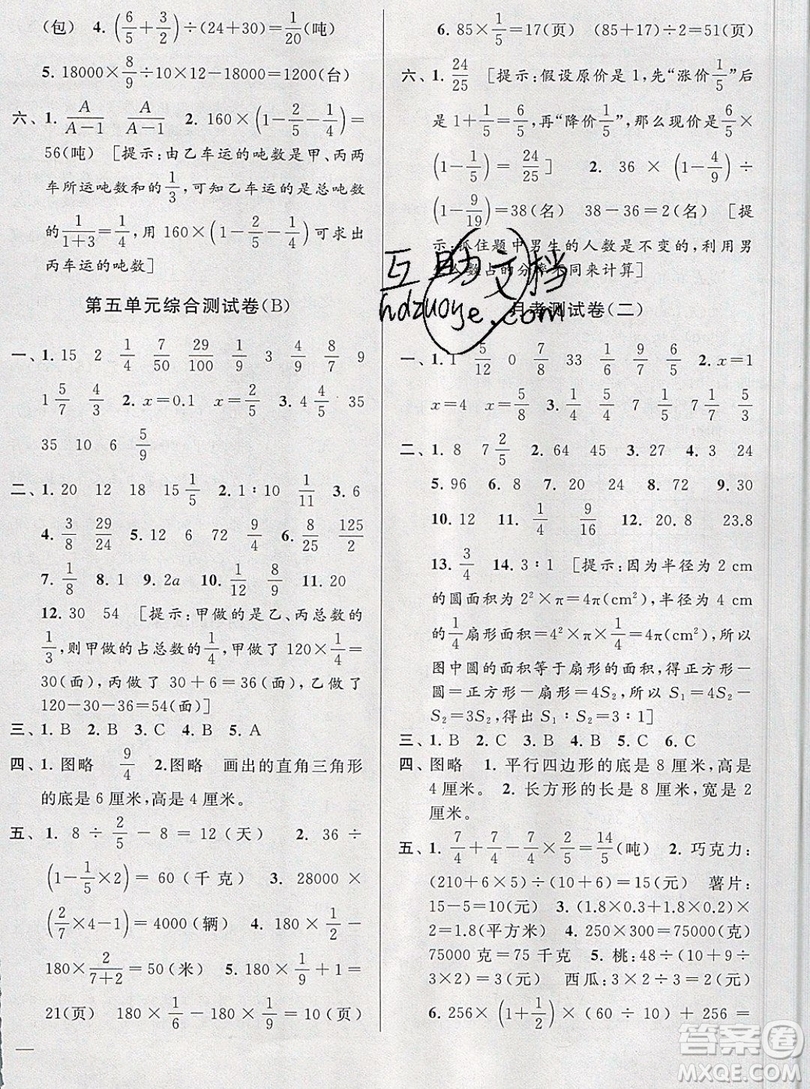 (包) 4. (6/5+3/2)÷(24+30)=1/20(吨)
5. 18000×8/9÷10-18000=1200(台)
六、1. A/(A-1) A/(A-1) 2. 160×(1-2/5-1/4)=
56(吨) [提示:由乙车运的吨数是甲、丙两
车所运吨数和的1/3,可知乙车运的是总吨数
的1/(1+3)=1/4,用 160×(1-2/5-1/4)可求出
丙两车运的吨数]
第五单元综合测试卷(B)
一、1. 15 2 1/4 7/50 29/100 1/9 3/8 2/3
1 5/7 4/3 2. x=0.1 x=3/5 3. 4 4/5 35
35 10 6 5/9
二、1. 20 12 20 15 1/5 2. 1∶10 1/11 3. 6
4. 3/8 29/24 5. 12 16 9/4 6. 8/25 125/2
7. 1/8 8. 15 9. 2a 10. 1/4 11. 8/9
12. 30 54 [提示:甲做的是乙、丙总数的
1/3,则甲做的占总数的1/4,甲做了 120×1/4=
30(面),丙做了 30+6=36(面),乙做了
120-30-36=54(面)]
三、1. B 2. B 3. C 4. B 5. A
四、1. 图略 9/4 2. 图略 画出的直角三角形
的底是 6 厘米,高是 4 厘米。
五、1. 8÷2/5-8=12(天) 2. 36÷
(1-1/5×2)=60(千克) 3. 28000×
(2/7×4-1)=4000(辆) 4. 180×1/2-
180×2/(7+2)=50(米) 5. 180×(1-1/6-1/5)=
21(页) 180×1/6-180×1/9=10(页)
6. 85×1/5=17(页) (85+17)÷2=51(页)
六、1. 24/25 [提示:假设原价是 1,先“涨价1/5”后
是 1+1/5=6/5,再“降价1/5”,那么现价是6/5×
(1-1/5)=24/25] 2. 36×(1-4/9)÷
(1-9/19)=38(名) 38-36=2(名) [提
示:抓住题中男生的人数是不变的,两次男
生人数占的分率不同来计算]
互助文档
hdzuoye.com
月考测试卷(二)
一、1. 1 5/12 0 7/8 33 1/6 9/7 6/5 2. x=1
x=4 x=5/8 3. 1/4 7/5 1/7 5/9
二、1. 8 7 2/5 2. 64 45 3. 27 4. 3 24
5. 96 6. 8 7. 60 90 8. 30 9. 27
10. 12 11. 1/4 9/16 12. 20 23.8
13. 3/4 14. 3∶1 [提示:因为半径为 2 cm
的圆面积为 2²×π=4π(cm²),半径为 4 cm
的1/4扇形面积=4²×π×1/4=4π(cm²),所以
图中圆的面积等于扇形的面积,得出正方形-
圆=正方形-扇形=4S₂,所以 S₁=4S₂-
S₂=3S₂,得出 S₁∶S₂=3∶1]
三、1. B 2. B 3. C 4. C 5. B 6. C
四、图略 1. 平行四边形的底是 8 厘米,高是
2 厘米。 2. 长方形的长是 8 厘米,宽是 2
厘米。
五、1. 7/4+7/4-7/4×2/5=14/5(吨) 2. 巧克力:
(210+6×5)÷(6+5×2)=15(元) 薯片:
15-5=10(元) 3. (1.8×0.3+1.8×0.2)×
2=1.8(平方米) 4. 250×300=75000(克)
75000 克=75 千克 5. 桃:48÷(10+9÷
3×2)=3(元) 西瓜:3×2÷2=3(元)
6. 256×1/2×(60÷10)+256=
答案圈
MXQE.COM